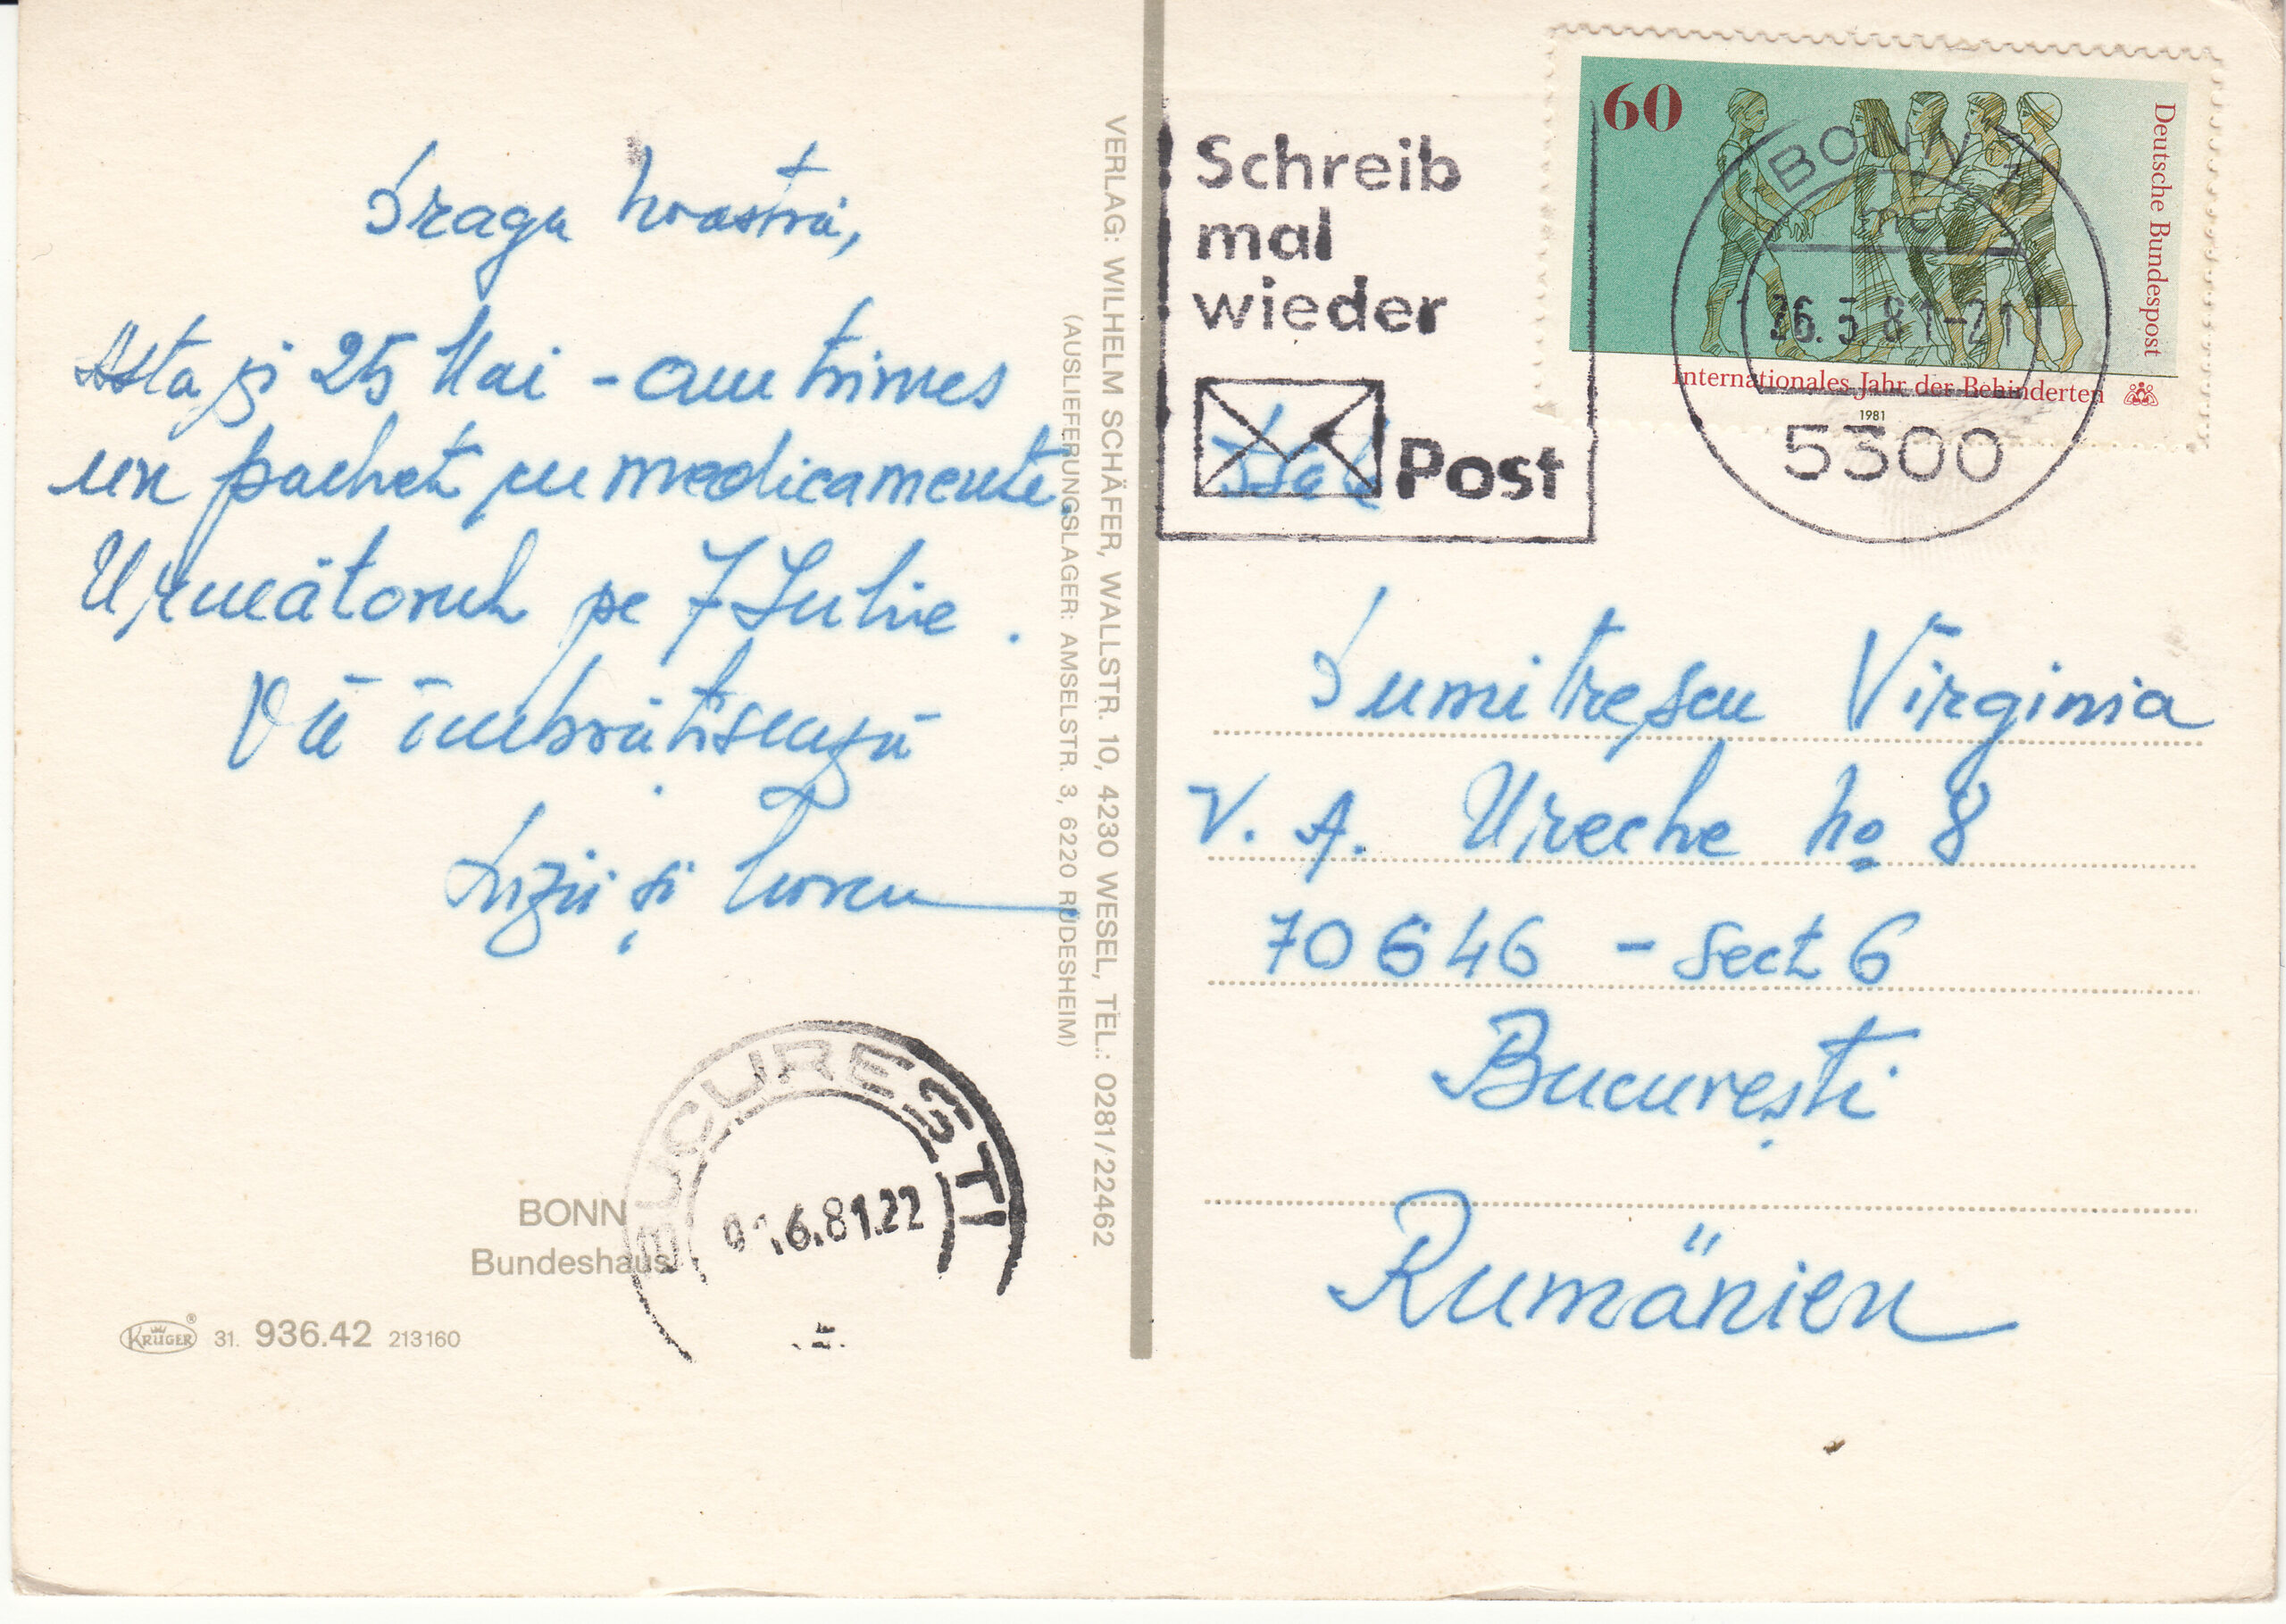 Draga noastră,
Astăzi 25 Mai - am trimes
un pachet cu medicamente.
Următorul pe 7 Iulie.
Vă îmbrățișează
și
BONN
Bundeshaus
KRÜGER ® 31. 936.42 213160
BUCURESTI
6.81.22
VERLAG: WILHELM SCHÄFER, WALLSTR. 10, 4230 WESEL, TEL.: 0281/22462
(AUSLIEFERUNGSLAGER: AMSELSTR. 3, 6220 RÜDESHEIM)
Schreib
mal
wieder
Post
60
Deutsche Bundespost
Internationales Jahr der Behinderten
1981
BONN
26.5.81-21
5300
Dumitrescu Virginia
V. A. Ureche no 8
70646 - Sect 6
București
Rumänien